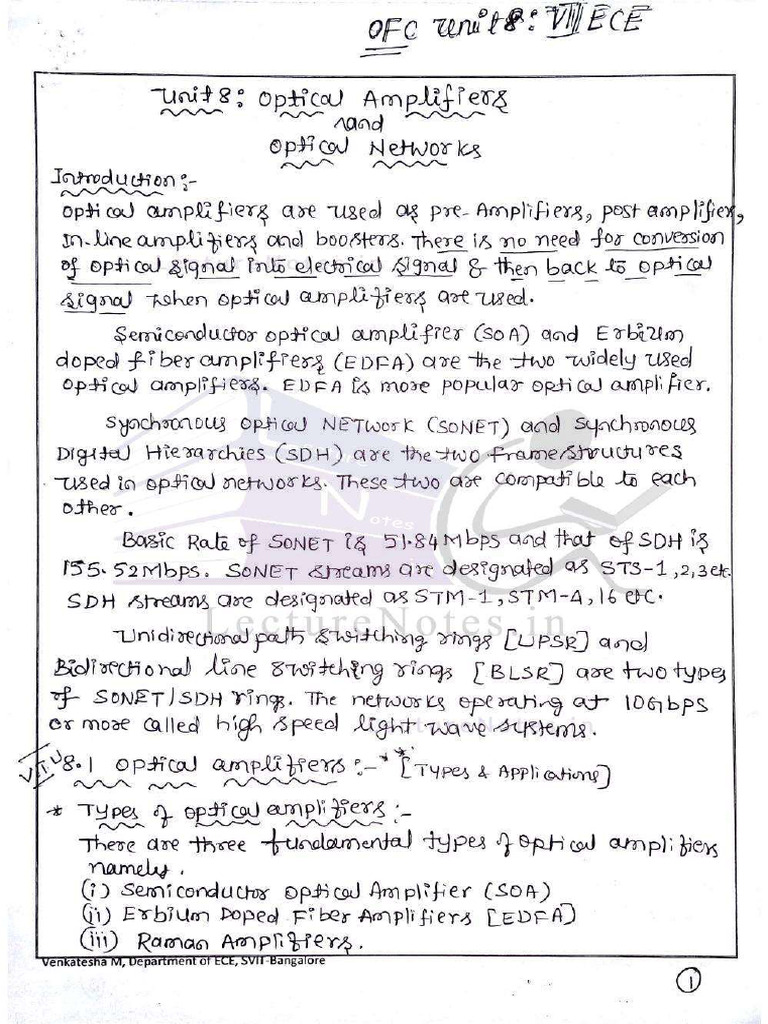 OFC Unit 8: VII ECE
Unit 8: Optical Amplifiers
and
Optical Networks
Introduction :-
Optical amplifiers are used as pre-Amplifiers, post amplifiers,
In-line amplifiers and boosters. There is no need for conversion
of optical signal into electrical signal & then back to optical
signal when optical amplifiers are used.
Semiconductor optical amplifier (SOA) and Erbium
doped fiber amplifiers (EDFA) are the two widely used
optical amplifiers. EDFA is more popular optical amplifier.
Synchronous optical NETWORK (SONET) and synchronous
Digital Hierarchies (SDH) are the two frame structures
used in optical networks. These two are compatible to each
other.
Basic Rate of SONET is 51.84 Mbps and that of SDH is
155.52 Mbps. SONET streams are designated as STS-1,2,3 etc.
SDH streams are designated as STM-1, STM-4, 16 etc.
LectureNotes.in
Unidirectional path switching rings [UPSR] and
Bidirectional line switching rings [BLSR] are two types
of SONET/SDH rings. The networks operating at 10Gbps
or more called high speed light wave systems.
VTU 8.1 Optical amplifiers :- ** [Types & Applications]
* Types of optical amplifiers :-
There are three fundamental types of optical amplifiers
namely.
(i) Semiconductor Optical Amplifier (SOA)
(ii) Erbium Doped Fiber Amplifiers [EDFA]
(iii) Raman Amplifiers.
Venkatesha M, Department of ECE, SVIT-Bangalore
1